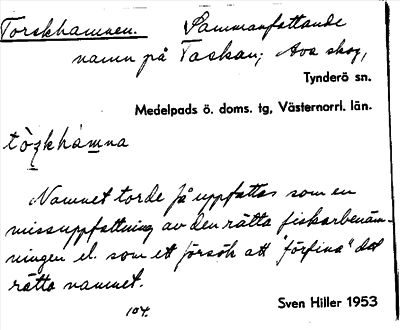 Torskhamnen. Sammanfattande
namn på Taskan; Ava skog,
Tynderö sn.
Medelpads ö. doms. tg, Västernorrl. län.
tòʒkhàmna
Namnet torde få uppfattas som en
missuppfattning av den rätta fiskarbenäm-
ningen el. som ett försök att "förfina" det
rätta namnet.
104.
Sven Hiller 1953